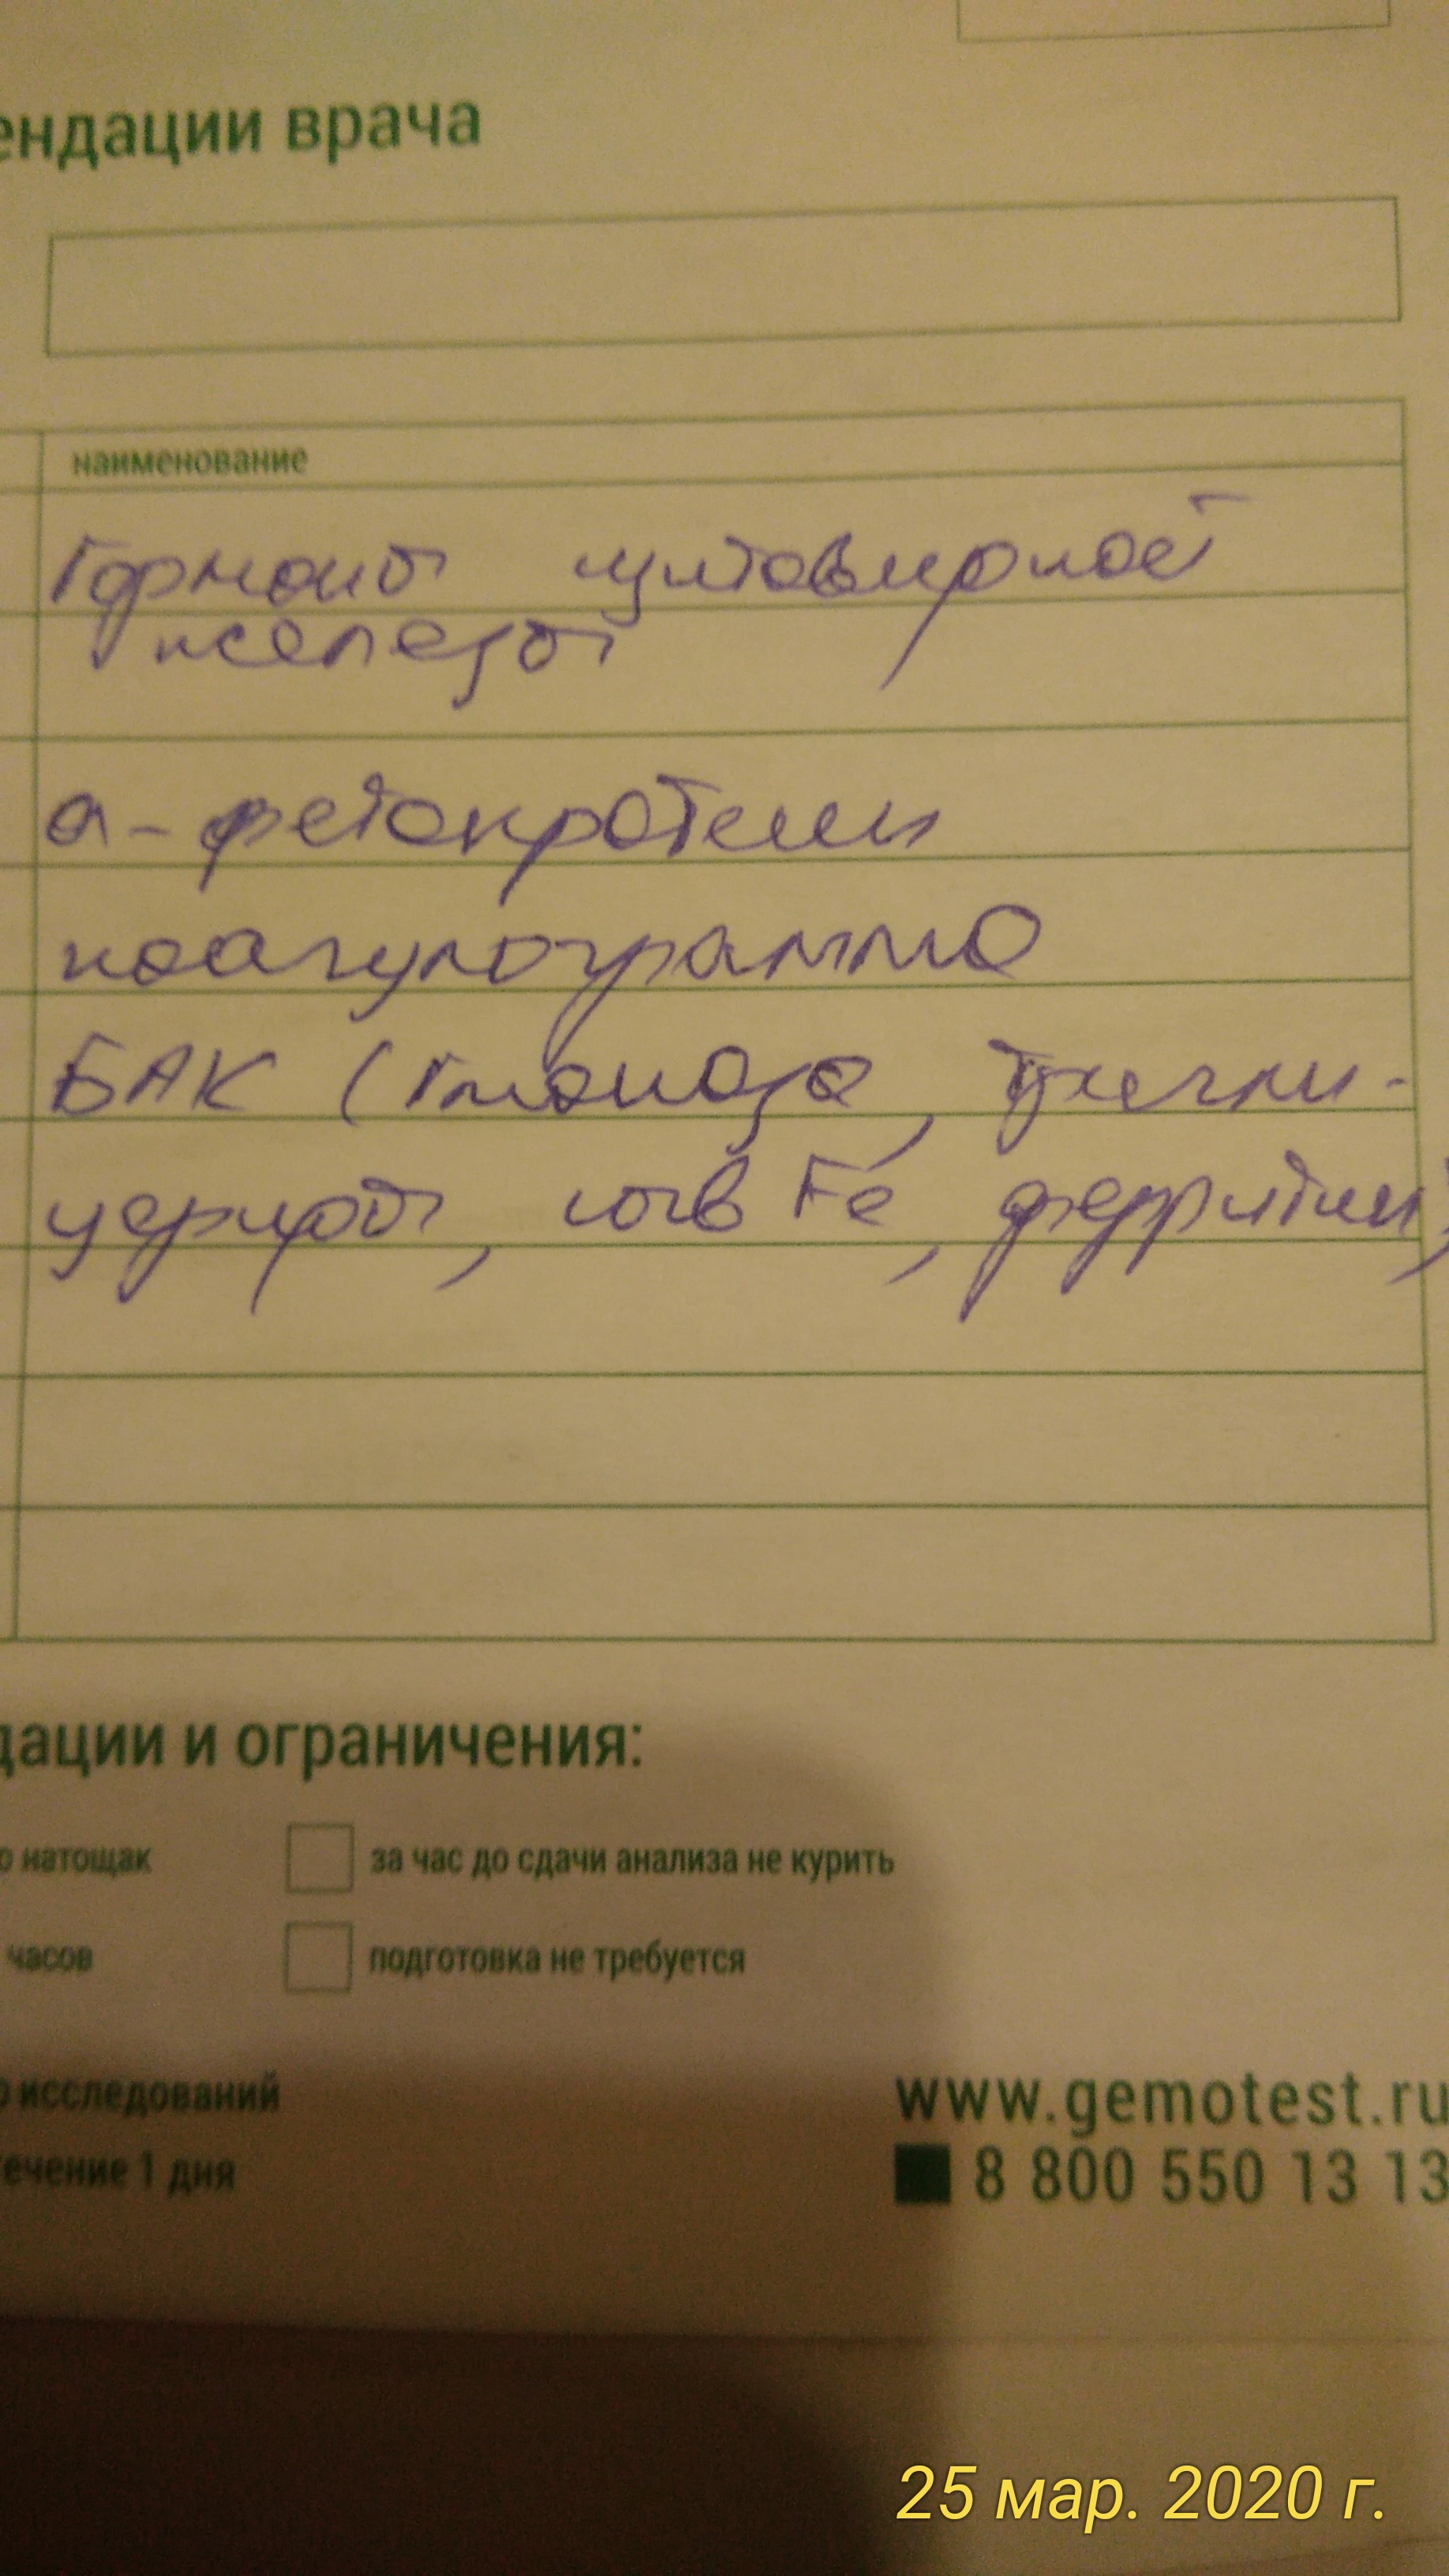 ендации врача
наименование
Гормоны щитовидной
железы
α-фетопротеин
коагулограмма
БАК (глюкоза, тригли-
цериды, сыв Fe, ферритин)
дации и ограничения:
о натощак
за час до сдачи анализа не курить
часов
подготовка не требуется
о исследований
www.gemotest.ru
течение 1 дня
8 800 550 13 13
25 мар. 2020 г.